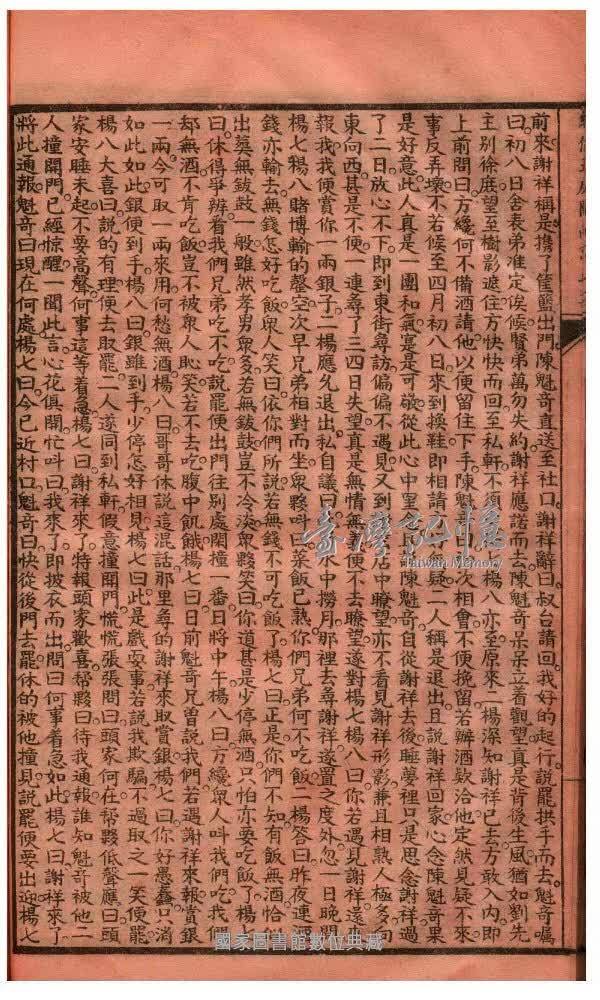 前來謝祥稱是攜了筐籃出門陳魁奇直送至社口謝祥辭曰叔台請回我好的起行說罷拱手而去魁奇囑
曰初八日舍表弟准定俟候賢弟萬勿失約謝祥應諾而去陳魁奇呆呆立着觀望真是背後生風猶如劉先
主別徐庶望至樹影遮住方怏怏而回至私軒不復楊八亦至原來二楊深知謝祥已去方敢入內即
上前問曰方纔何不備酒請他以便留住下手陳魁曰次相會不便挽留若辦酒欵洽他定然見疑不來
事反弄壞不若候至四月初八日來到換鞋即相請疑二人稱是退出且說謝祥回家心念陳魁奇果
是好意此人真是一團和氣寔是可敬從此心中望民陳魁奇自從謝祥去後睡夢裡只是思念謝祥過
了二日放心不下即到東街尋訪偏偏不遇見又到店中瞭望亦不看見謝祥形影兼且相熟人極多向
東向西甚是不便一連尋了三四日失望真是無情無着便不去瞭望遂對楊七楊八曰你若遇見謝祥遂
報我我便賞你一兩銀子二楊應允退出私自議曰水中撈月那裡去尋謝祥遂置之度外忽一日晚間
楊七楊八賭博輸的罄空次早兄弟相對而坐眾夥呌曰菜飯已熟你們兄弟何不吃飯二楊答曰昨夜連酒
錢亦輸去無錢怎好吃飯眾人笑曰依你們所說若無錢不可吃飯了楊七曰正是你們不知有飯無酒恰似
出葬無鈸鼓一般雖然孝男眾多若無鈸鼓豈不冷淡眾夥笑曰你道甚是少停無酒只怕亦要吃飯了楊七
曰休得爭辨看我們兄弟吃不吃說罷便出門往別處撞一番日將中午楊八曰方纔眾人呌我們吃我們
却無酒不肯吃飯豈不被眾人恥笑若不去吃腹中飢餓楊七曰日前魁奇兄曾說我們若遇謝祥來報賞銀
一兩今可取一兩來用何愁無酒楊八曰哥哥休說這混話那里尋的謝祥來取賞銀楊七曰你好愚蠢只消
如此如此銀便到手楊八曰銀雖到手少停怎好相見楊七曰此是戲耍事若說我欺騙不過取之一笑便罷
楊八大喜曰說的有理便去取罷二人遂同到私軒假意撞開門慌慌張張問曰頭家何在幇夥低聲應曰頭
家安睡未起不要高聲何事這等着急楊七曰謝祥來了特報頭家歡喜幇夥曰待我通報誰知魁奇被他二
人撞開門已經驚醒一聞此言心花俱開忙呌曰我來了即披衣而出問曰何事着急如此楊七曰謝祥來了
將此通報魁奇曰現在何處楊七曰今已近村口魁奇曰快從後門去罷休的被他撞見說罷便要出迎楊七
臺灣記憶
Taiwan Memory
國家圖書館數位典藏